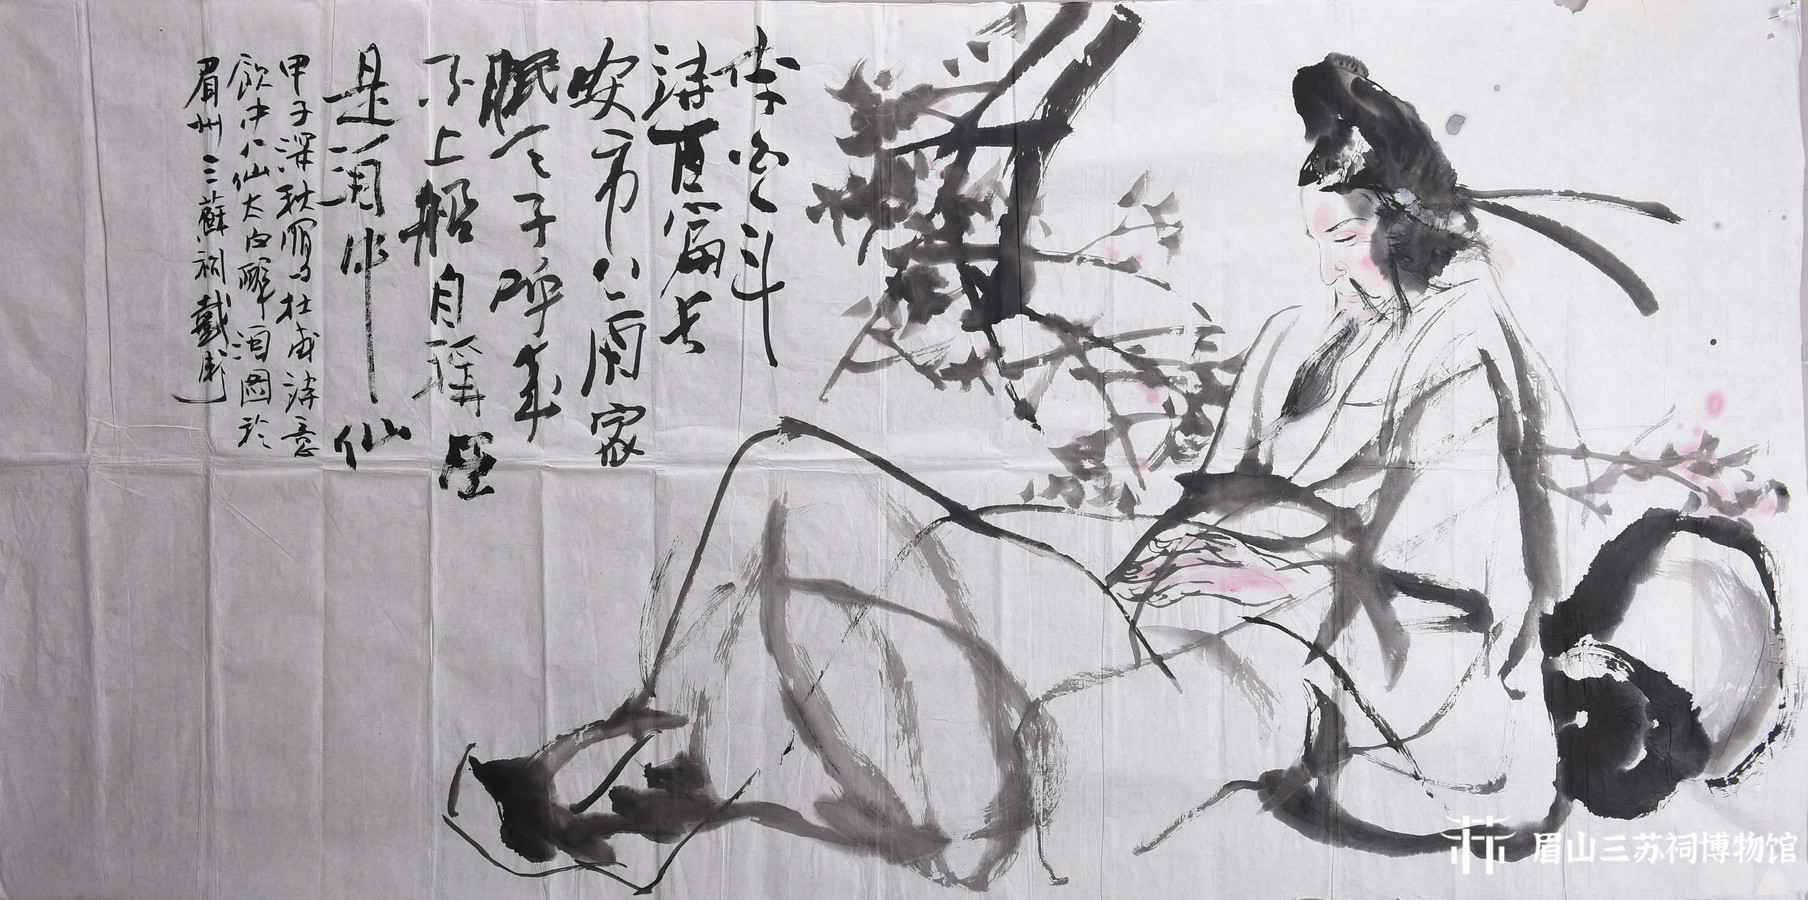 李白一斗
诗百篇长
安市上酒家
眠天子呼来
不上船自称臣
是酒中仙
甲子深秋写杜甫诗意
饮中八仙太白醉酒图于
眉州三蘇祠戴卫
眉山三苏祠博物馆